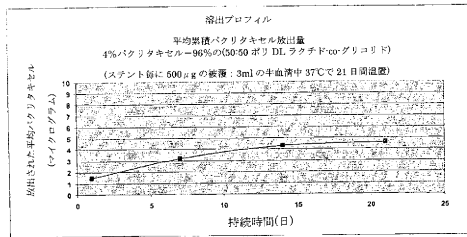 溶出プロフィル
平均累積パクリタキセル放出量
4%パクリタキセル-96%の(50:50 ポリ DL ラクチド-co-グリコリド)
(ステント毎に 600μg の被覆:3ml の牛血清中 37℃で 21 日間温置)
放出された平均パクリタキセル
(マイクログラム)
10
9
8
7
6
5
4
3
2
1
0
0
5
10
15
20
25
持続時間(日)